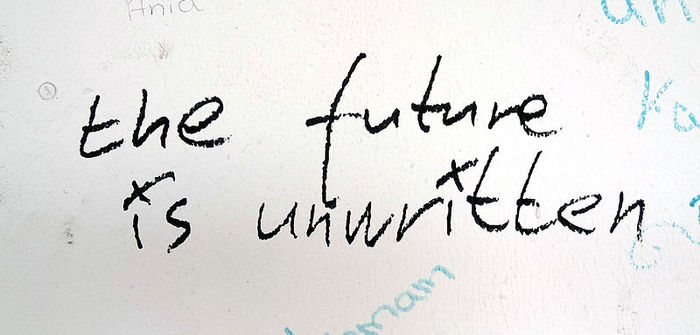 Ania
the future
is unwritten